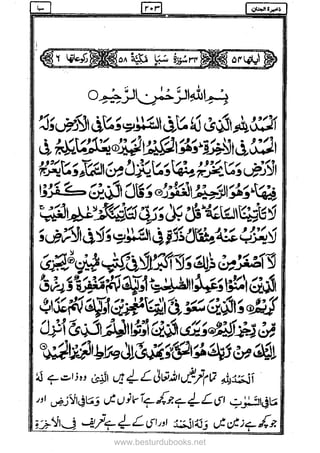 سبا ۲۰۳ ذخيرة الجنان
اٰیاتها ۵۴ ۳۴ سُوْرَةُ سَبَاٍ مَّكِّیَّةٌ ۵۸ رکوعاتها ۶
بِسْمِ اللّٰهِ الرَّحْمٰنِ الرَّحِیْمِ ۝
اَلْحَمْدُ لِلّٰهِ الَّذِیْ لَهٗ مَا فِی السَّمٰوٰتِ وَمَا فِی الْاَرْضِ وَلَهُ
الْحَمْدُ فِی الْاٰخِرَةِ ؕ وَهُوَ الْحَكِیْمُ الْخَبِیْرُ ۝ یَعْلَمُ مَا یَلِجُ فِی
الْاَرْضِ وَمَا یَخْرُجُ مِنْهَا وَمَا یَنْزِلُ مِنَ السَّمَآءِ وَمَا یَعْرُجُ
فِیْهَا ؕ وَهُوَ الرَّحِیْمُ الْغَفُوْرُ ۝ وَقَالَ الَّذِیْنَ كَفَرُوْا
لَا تَاْتِیْنَا السَّاعَةُ ؕ قُلْ بَلٰی وَرَبِّیْ لَتَاْتِیَنَّكُمْ ۙ عٰلِمِ الْغَیْبِ ۚ
لَا یَعْزُبُ عَنْهُ مِثْقَالُ ذَرَّةٍ فِی السَّمٰوٰتِ وَلَا فِی الْاَرْضِ وَ
لَاۤ اَصْغَرُ مِنْ ذٰلِكَ وَلَاۤ اَكْبَرُ اِلَّا فِیْ كِتٰبٍ مُّبِیْنٍ ۝ لِّیَجْزِیَ
الَّذِیْنَ اٰمَنُوْا وَعَمِلُوا الصّٰلِحٰتِ ؕ اُولٰٓئِكَ لَهُمْ مَّغْفِرَةٌ وَّرِزْقٌ
كَرِیْمٌ ۝ وَالَّذِیْنَ سَعَوْ فِیْۤ اٰیٰتِنَا مُعٰجِزِیْنَ اُولٰٓئِكَ لَهُمْ عَذَابٌ
مِّنْ رِّجْزٍ اَلِیْمٌ ۝ وَیَرَی الَّذِیْنَ اُوْتُوا الْعِلْمَ الَّذِیْۤ اُنْزِلَ
اِلَیْكَ مِنْ رَّبِّكَ هُوَ الْحَقَّ ۙ وَیَهْدِیْۤ اِلٰی صِرَاطِ الْعَزِیْزِ الْحَمِیْدِ ۝
اَلْحَمْدُ لِلّٰهِ تمام تعریفیں اللہ تعالیٰ کے لیے ہیں الَّذِیْ وہ ذات ہے لَهٗ
مَا فِی السَّمٰوٰتِ اسی کے لیے ہے جو کچھ ہے آسمانوں میں وَمَا فِی الْاَرْضِ اور
جو کچھ ہے زمین میں وَلَهُ الْحَمْدُ اور اسی کے لیے ہے تعریف فِی الْاٰخِرَةِ
www.besturdubooks.net